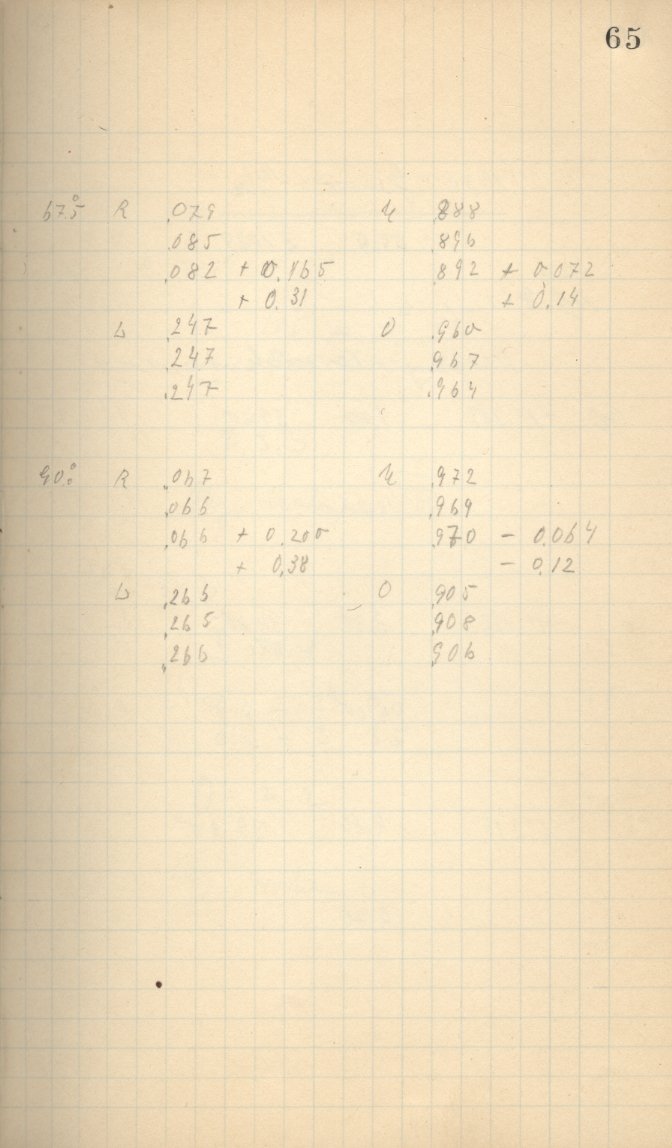 65
67°.5 R .079 U .888
.085 .896
.082 + 0.165 .892 + 0.072
+ 0.31 + 0.14
L .247 O .960
.247 .967
.247 .964
90°. R .067 U .972
.066 .969
.066 + 0.200 .970 - 0.064
+ 0.38 - 0.12
L .266 O .905
.265 .908
.266 .906